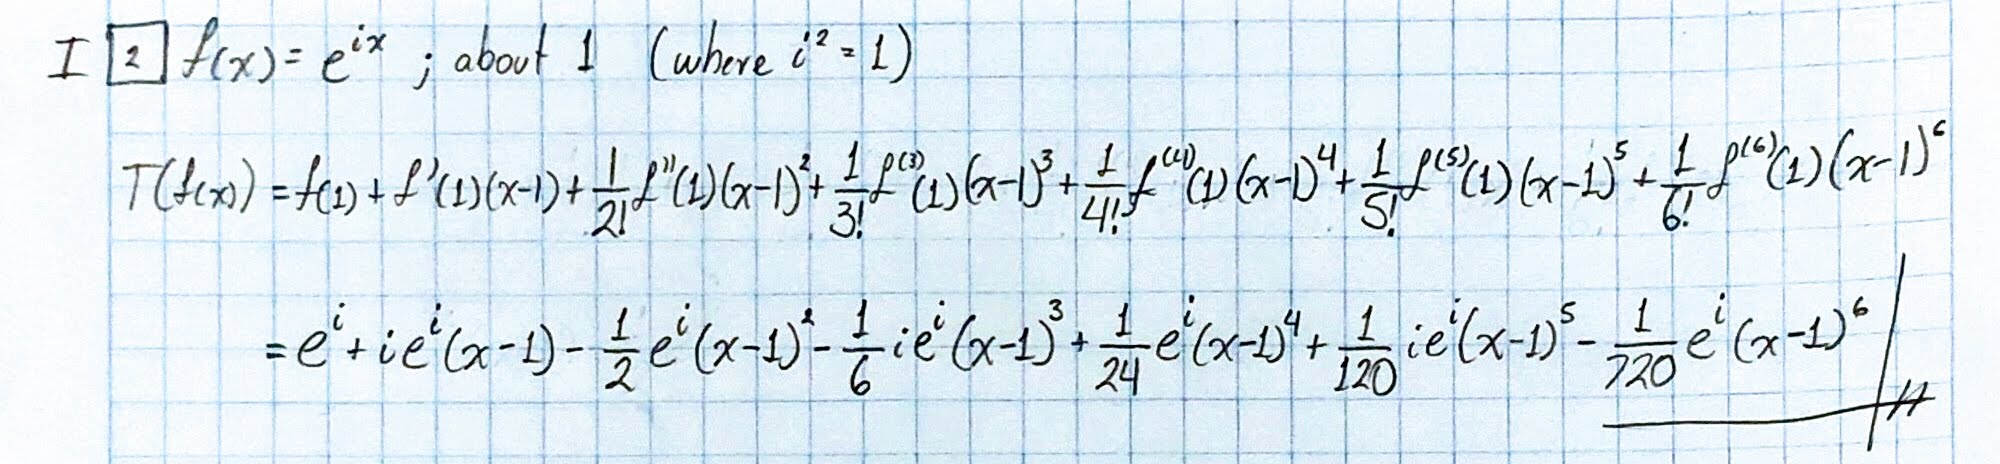 I [2] f(x) = e^{ix} ; about 1 (where i² = 1)
T(f(x)) = f(1) + f'(1)(x-1) + \frac{1}{2!} f''(1)(x-1)^2 + \frac{1}{3!} f^{(3)}(1)(x-1)^3 + \frac{1}{4!} f^{(4)}(1)(x-1)^4 + \frac{1}{5!} f^{(5)}(1)(x-1)^5 + \frac{1}{6!} f^{(6)}(1)(x-1)^6
= e^i + ie^i(x-1) - \frac{1}{2} e^i(x-1)^2 - \frac{1}{6} ie^i(x-1)^3 + \frac{1}{24} e^i(x-1)^4 + \frac{1}{120} ie^i(x-1)^5 - \frac{1}{720} e^i(x-1)^6 //